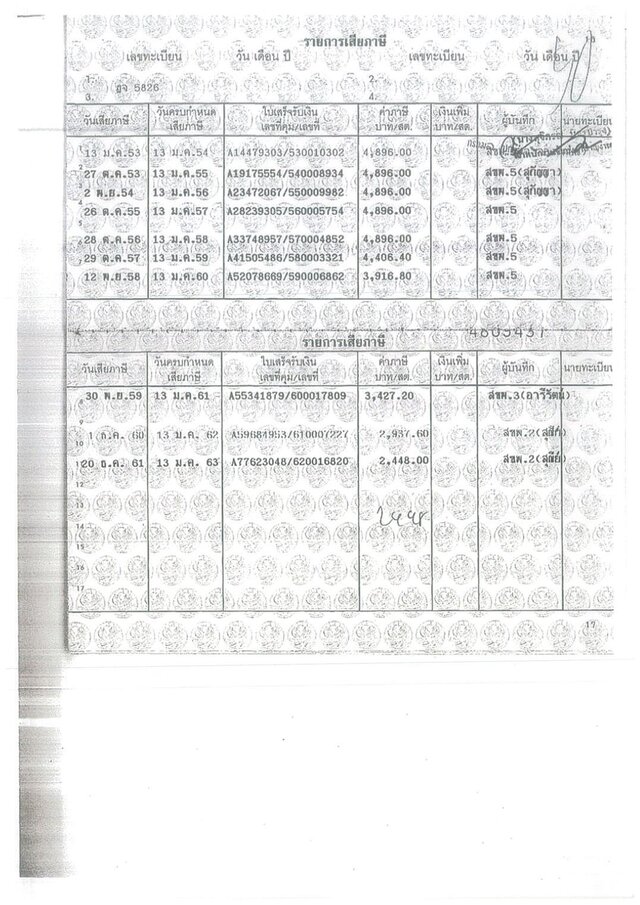 รายการเสียภาษี
เลขทะเบียน วัน เดือน ปี เลขทะเบียน วัน เดือน ปี
1. ฎจ 5826 2.
3. 4.
วันเสียภาษี วันครบกำหนดเสียภาษี ใบเสร็จรับเงิน เลขที่คุม/เลขที่ ค่าภาษี บาท/สต. เงินเพิ่ม บาท/สต. ผู้บันทึก นายทะเบียน
13 ม.ค.53 13 ม.ค.54 A14479303/530010302 4,896.00
27 ต.ค.53 13 ม.ค.55 A19175554/540008934 4,896.00 สขพ.5(สุกัญญา)
2 พ.ย.54 13 ม.ค.56 A23472067/550009982 4,896.00 สขพ.5(สุกัญญา)
26 ต.ค.55 13 ม.ค.57 A28239305/560005754 4,896.00 สขพ.5
28 ต.ค.56 13 ม.ค.58 A33748957/570004852 4,896.00 สขพ.5
29 ต.ค.57 13 ม.ค.59 A41505486/580003321 4,406.40 สขพ.5
12 พ.ย.58 13 ม.ค.60 A52078669/590006862 3,916.80 สขพ.5
รายการเสียภาษี
วันเสียภาษี วันครบกำหนดเสียภาษี ใบเสร็จรับเงิน เลขที่คุม/เลขที่ ค่าภาษี บาท/สต. เงินเพิ่ม บาท/สต. ผู้บันทึก นายทะเบียน
30 พ.ย.59 13 ม.ค.61 A55341879/600017809 3,427.20 สขพ.3(อารีรัตน์)
1 ก.ค. 60 13 ม.ค. 62 A59684953/610007227 2,937.60 สขพ.2
20 ธ.ค. 61 13 ม.ค. 63 A77623048/620016820 2,448.00 สขพ.2
2448
17